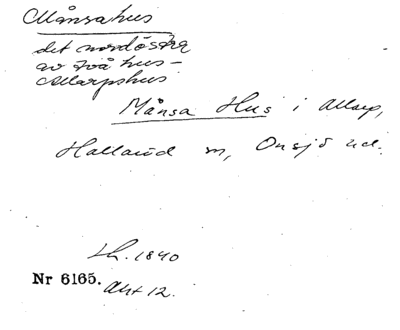 Månsahus
det nordöstra
av två hus -
Allarpshus
Månsa Hus i Allarp,
Hallaröd sn, Onsjö hd.
Lh. 1840
Nr 6165. Akt 12.